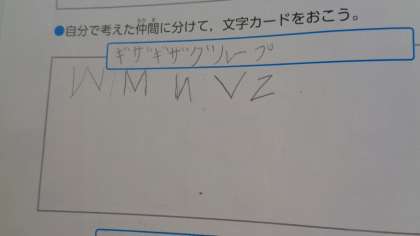 ●自分で考えた仲間に分けて，文字カードをおこう。
ギザギザグループ
W M N V Z